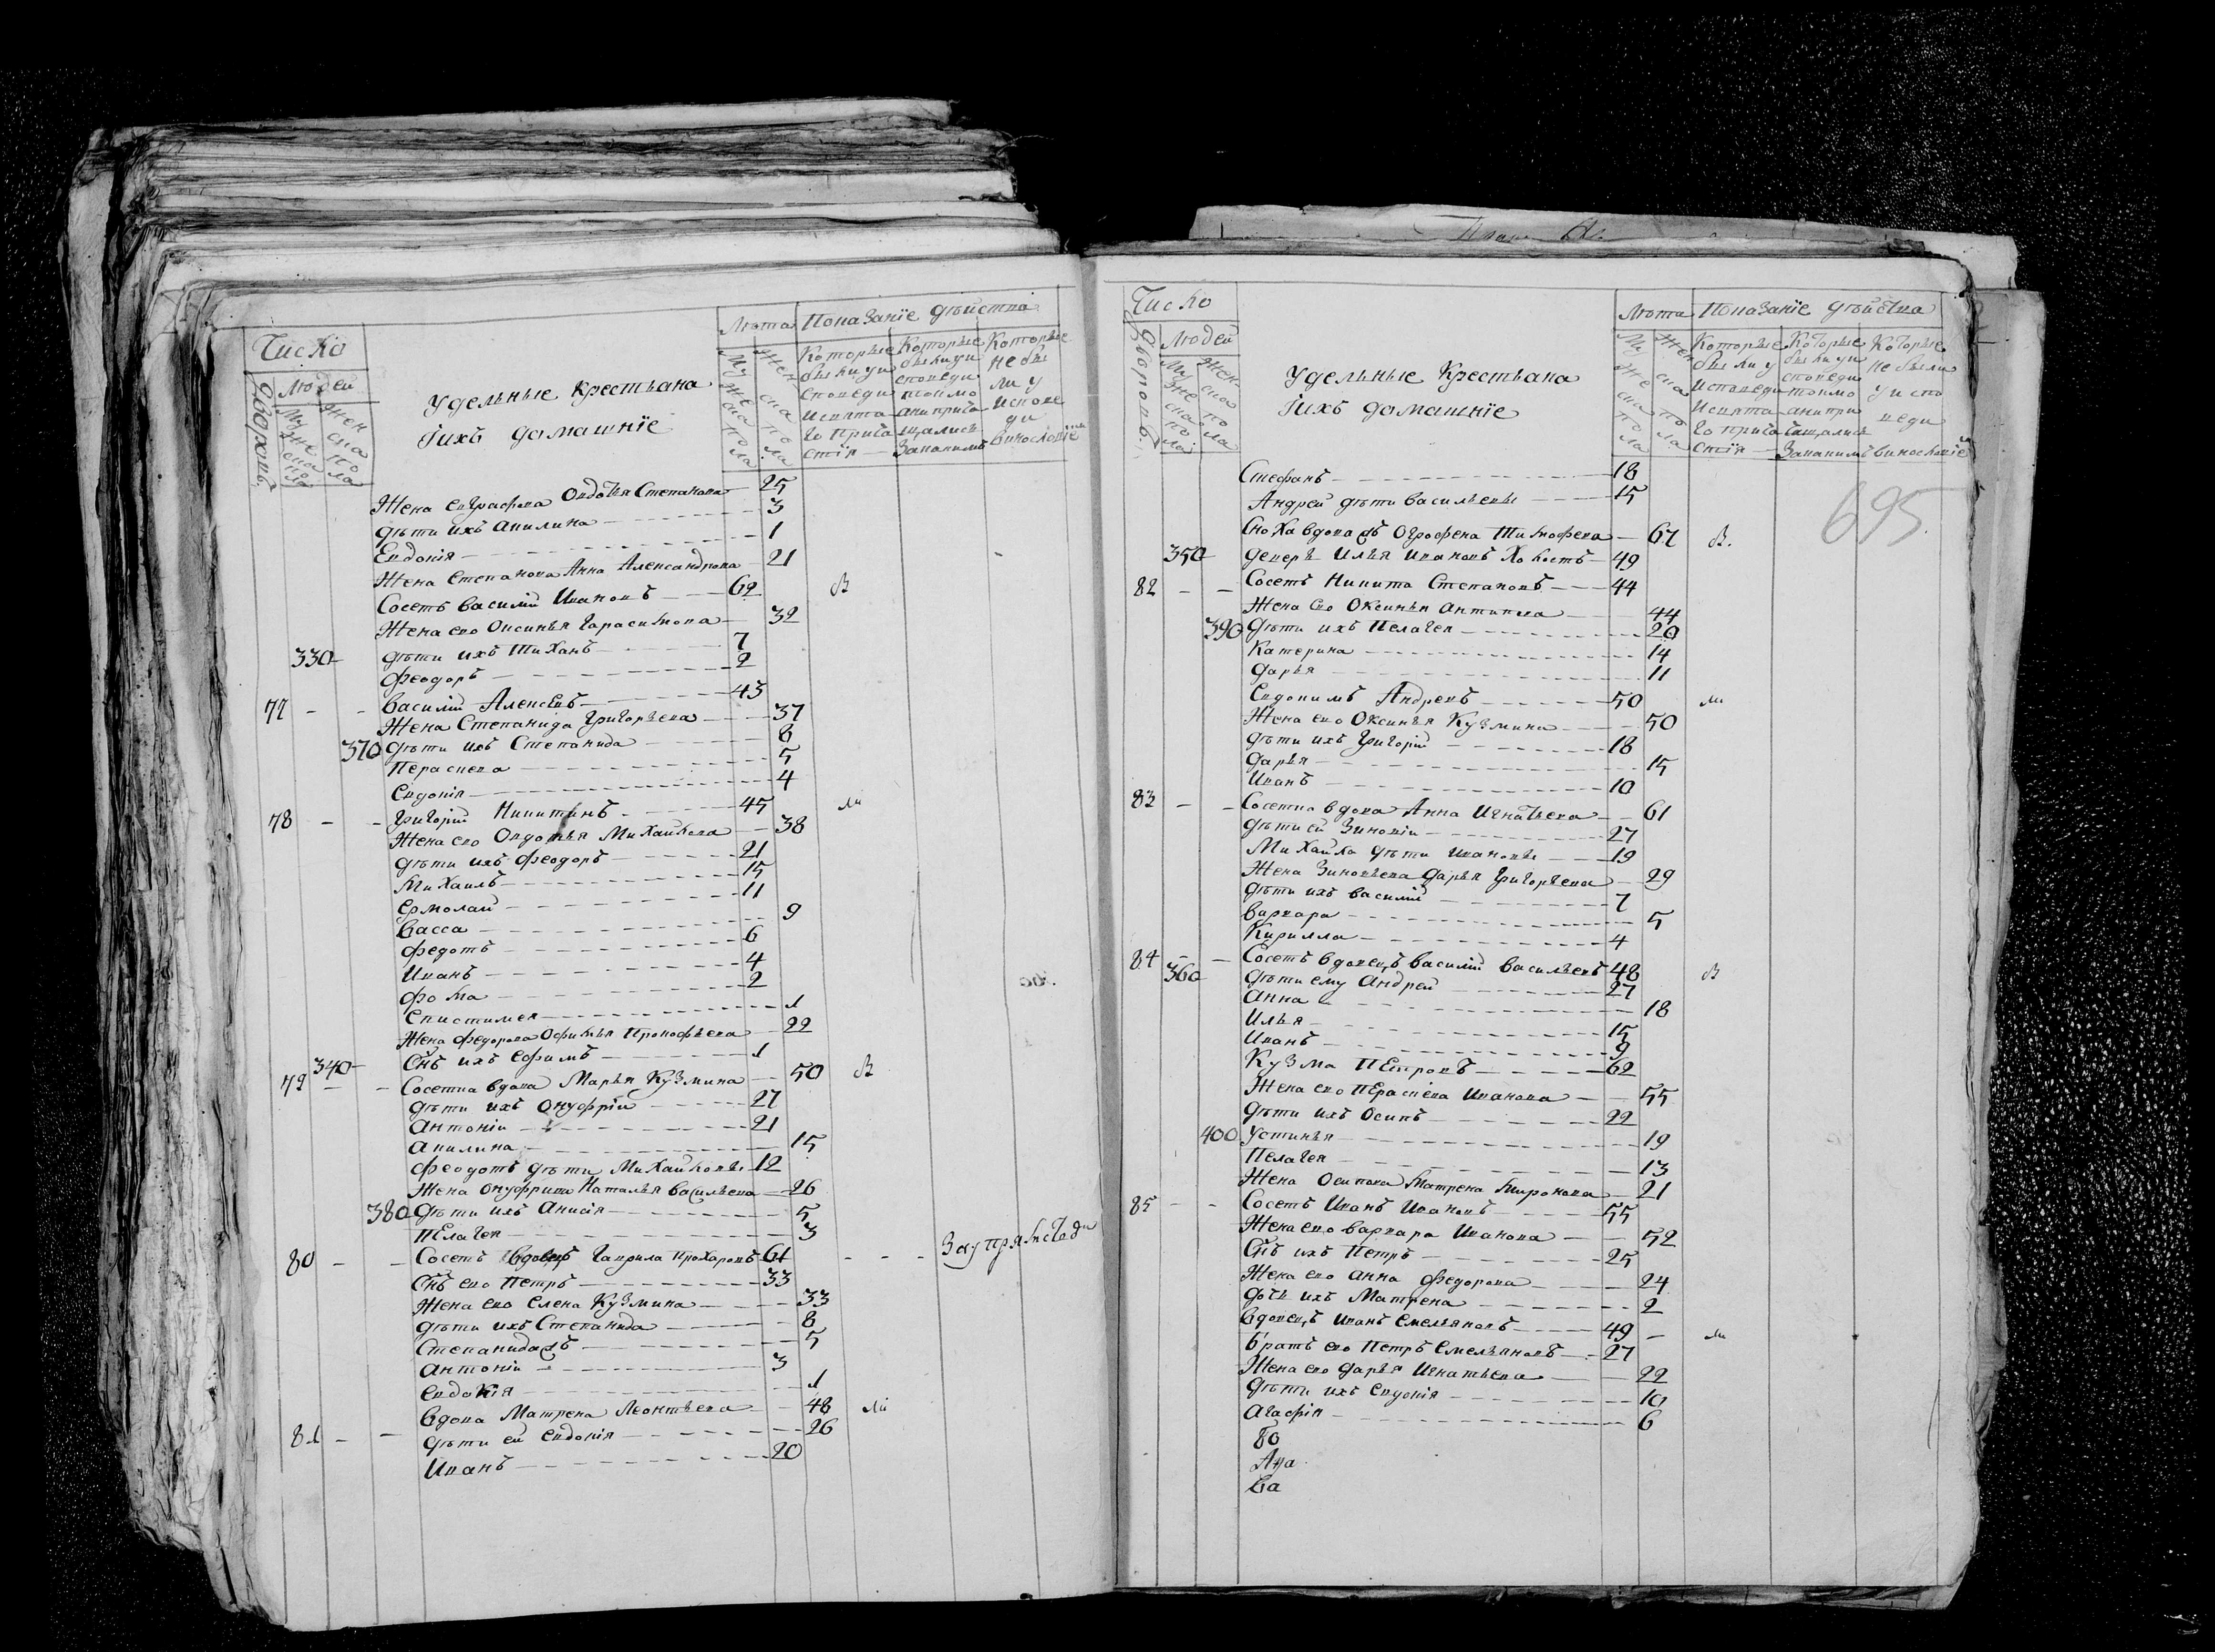 Число
Дворовъ.
Людей
Мужеска пола
Женска пола
Удельные Крестьяна
Iихъ домашнiе
Лѣта
Мужеска пола
Женска пола
Показанiе дѣйства
Которые были уисповеди исвятаго причастiя
Которые были уисповеди токмо анипричащались Закакимъ
Которые небыли уисповеди
винословiемъ
Жена евграфова Овдотья Степанова 25
дѣти ихъ Акилина 3
Евдокiя 1
Жена Степанова Анна Александрова 21
Сосетъ василiй Ивановъ 62 В
Жена ево Оксинья Гарасимова 32
330 дѣти ихъ Тиханъ 7
Феодоръ 2
77 Василiй Алексевъ 43
Жена Степанида Григорьева 37
370 дѣти ихъ Степанида 8
Пераскева 5
Евдокiя 4
78 Григорiй Никитинъ 45 ли
Жена ево Овдотья Михайлова 38
дѣти ихъ Феодоръ 21
Михаилъ 15
ермолай 11
Васса 9
Федотъ 6
Иванъ 4
Фома 2
Епистимея 1
Жена Федорова Офимья Прокофьева 22
340 Снъ ихъ ефимъ 1
79 Сосетка вдова Марья Кузмина 50 В
дѣти ихъ Онуфрiй 27
Антонiй 21
Акилина 15
Феодотъ дѣти Михайловы 12
Жена Онуфриева Наталья васильева 26
380 дѣти ихъ Анисiя 5
Пелагея 3
80 Сосетъ Вдовецъ Гаврила Прохаровъ 61 Заупрямствомъ
Снъ ево Петръ 33
Жена ево елена Кузмина 33
дѣти ихъ Степанида 8
Степанида дъ 5
Антонiй 3
евдокiя 1
81 Вдова Матрена Леонтьева 48 ли
дѣти ей Евдокiя 26
Иванъ 20
Число
Дворовъ.
Людей
Мужеска пола
Женска пола
Удельные Крестьяна
Iихъ домашнiе
Лѣта
Мужеска пола
Женска пола
Показанiе дѣйства
Которые были уисповеди исвятаго причастiя
Которые были уисповеди токмо анипричащались Закакимъ
Которые небыли уисповеди
винословiемъ
695
Стефанъ 18
Андрей дѣти васильевы 15
Сноха вдова дъ Огрофена Тимофеева 67 В.
350 деверь Илья Ивановъ Холостъ 49
82 Сосетъ Никита Степановъ 44
Жена ево Оксинья Антипева 44
390 дѣти ихъ Пелагея 20
Катерина 14
дарья 11
Евдокимъ Андревъ 50 ли
Жена ево Оксинья Кузмина 50
дѣти ихъ Григорiй 18
дарья 15
Иванъ 10
83 Сосетка вдова Анна Игнатьева 61
дѣти ей Зиновiй 27
Михайла дѣти Ивановы 19
Жена Зиновьева дарья Григорьева 29
дѣти ихъ василiй 7
Варвара 5
Кирилла 4
84 Сосетъ вдовецъ василiй васильевъ 48 В
360 дѣти ему Андрей 27
Анна 18
Илья 15
Иванъ 9
Кузма Петровъ 62
Жена ево Пераскева Иванова 55
дѣти ихъ Осипъ 22
400 Устинья 19
Пелагея 13
Жена Осипова Матрена Миронова 21
85 Сосетъ Иванъ Ивановъ 55
Жена ево варвара Иванова 52
Снъ ихъ Петръ 25
Жена ево анна Федорова 24
дочь ихъ Матрена 2
Вдовецъ Иванъ Емельяновъ 49 ли
братъ ево Петръ Емельяновъ 27
Жена ево дарья Игнатьева 22
дѣти ихъ Евдокiя 10
Агафiя 6
Ва